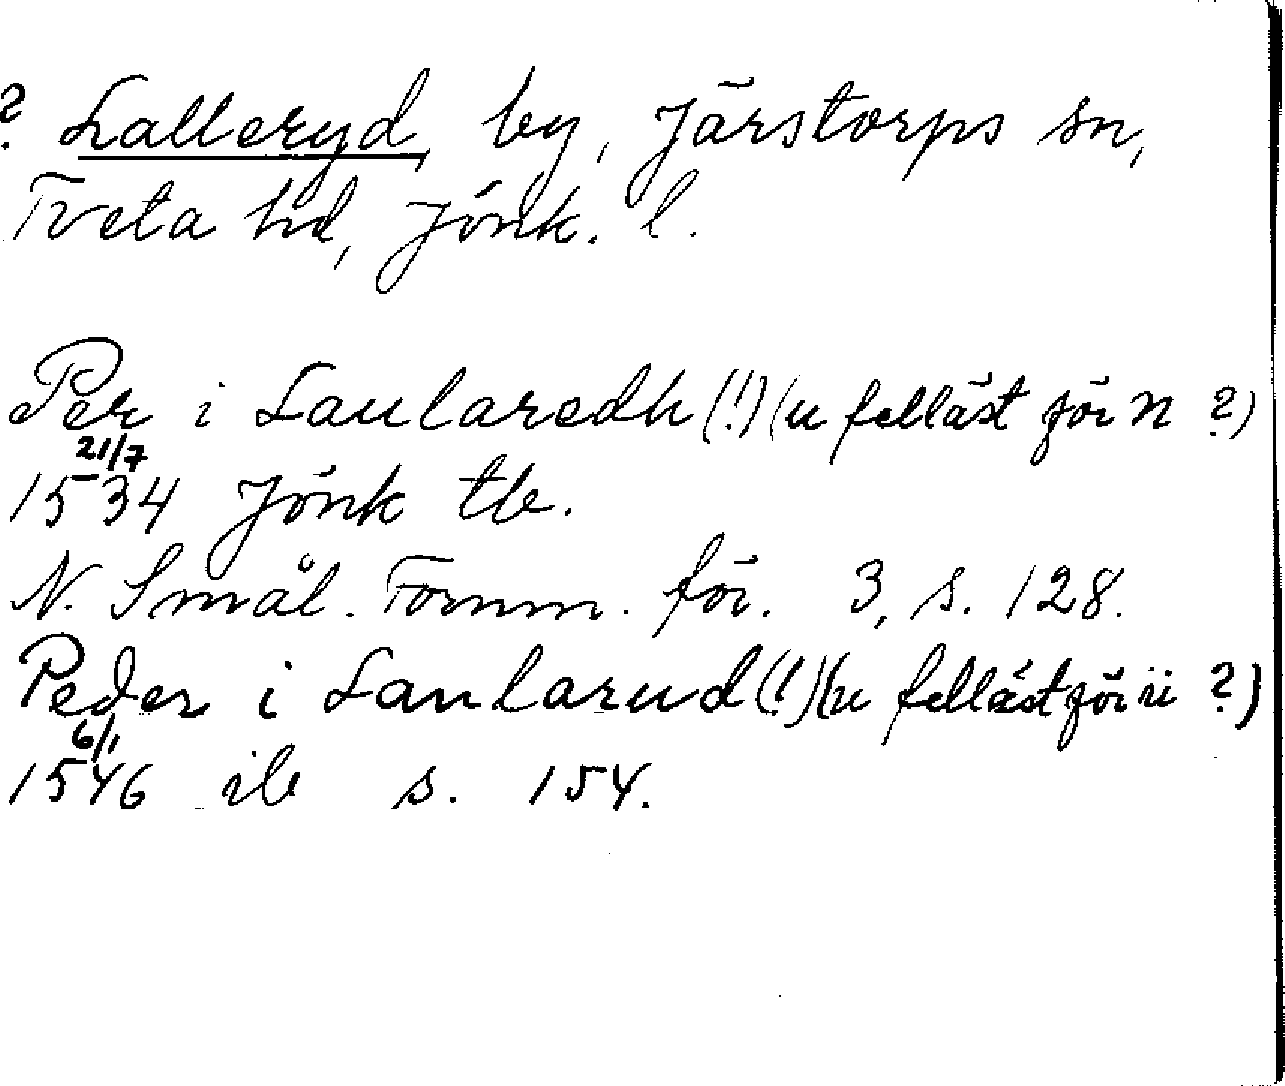 ? Lalleryd, by, Järstorps sn,
Tveta hd, Jönk. l.
Per i Laularedh (!) (u felläst för n ?)
21/7
1534 Jönk tb.
N. Smål. Fornm. för. 3, s. 128.
Peder i Laularud (!) (u felläst för n ?)
6/1
1546 ib s. 154.